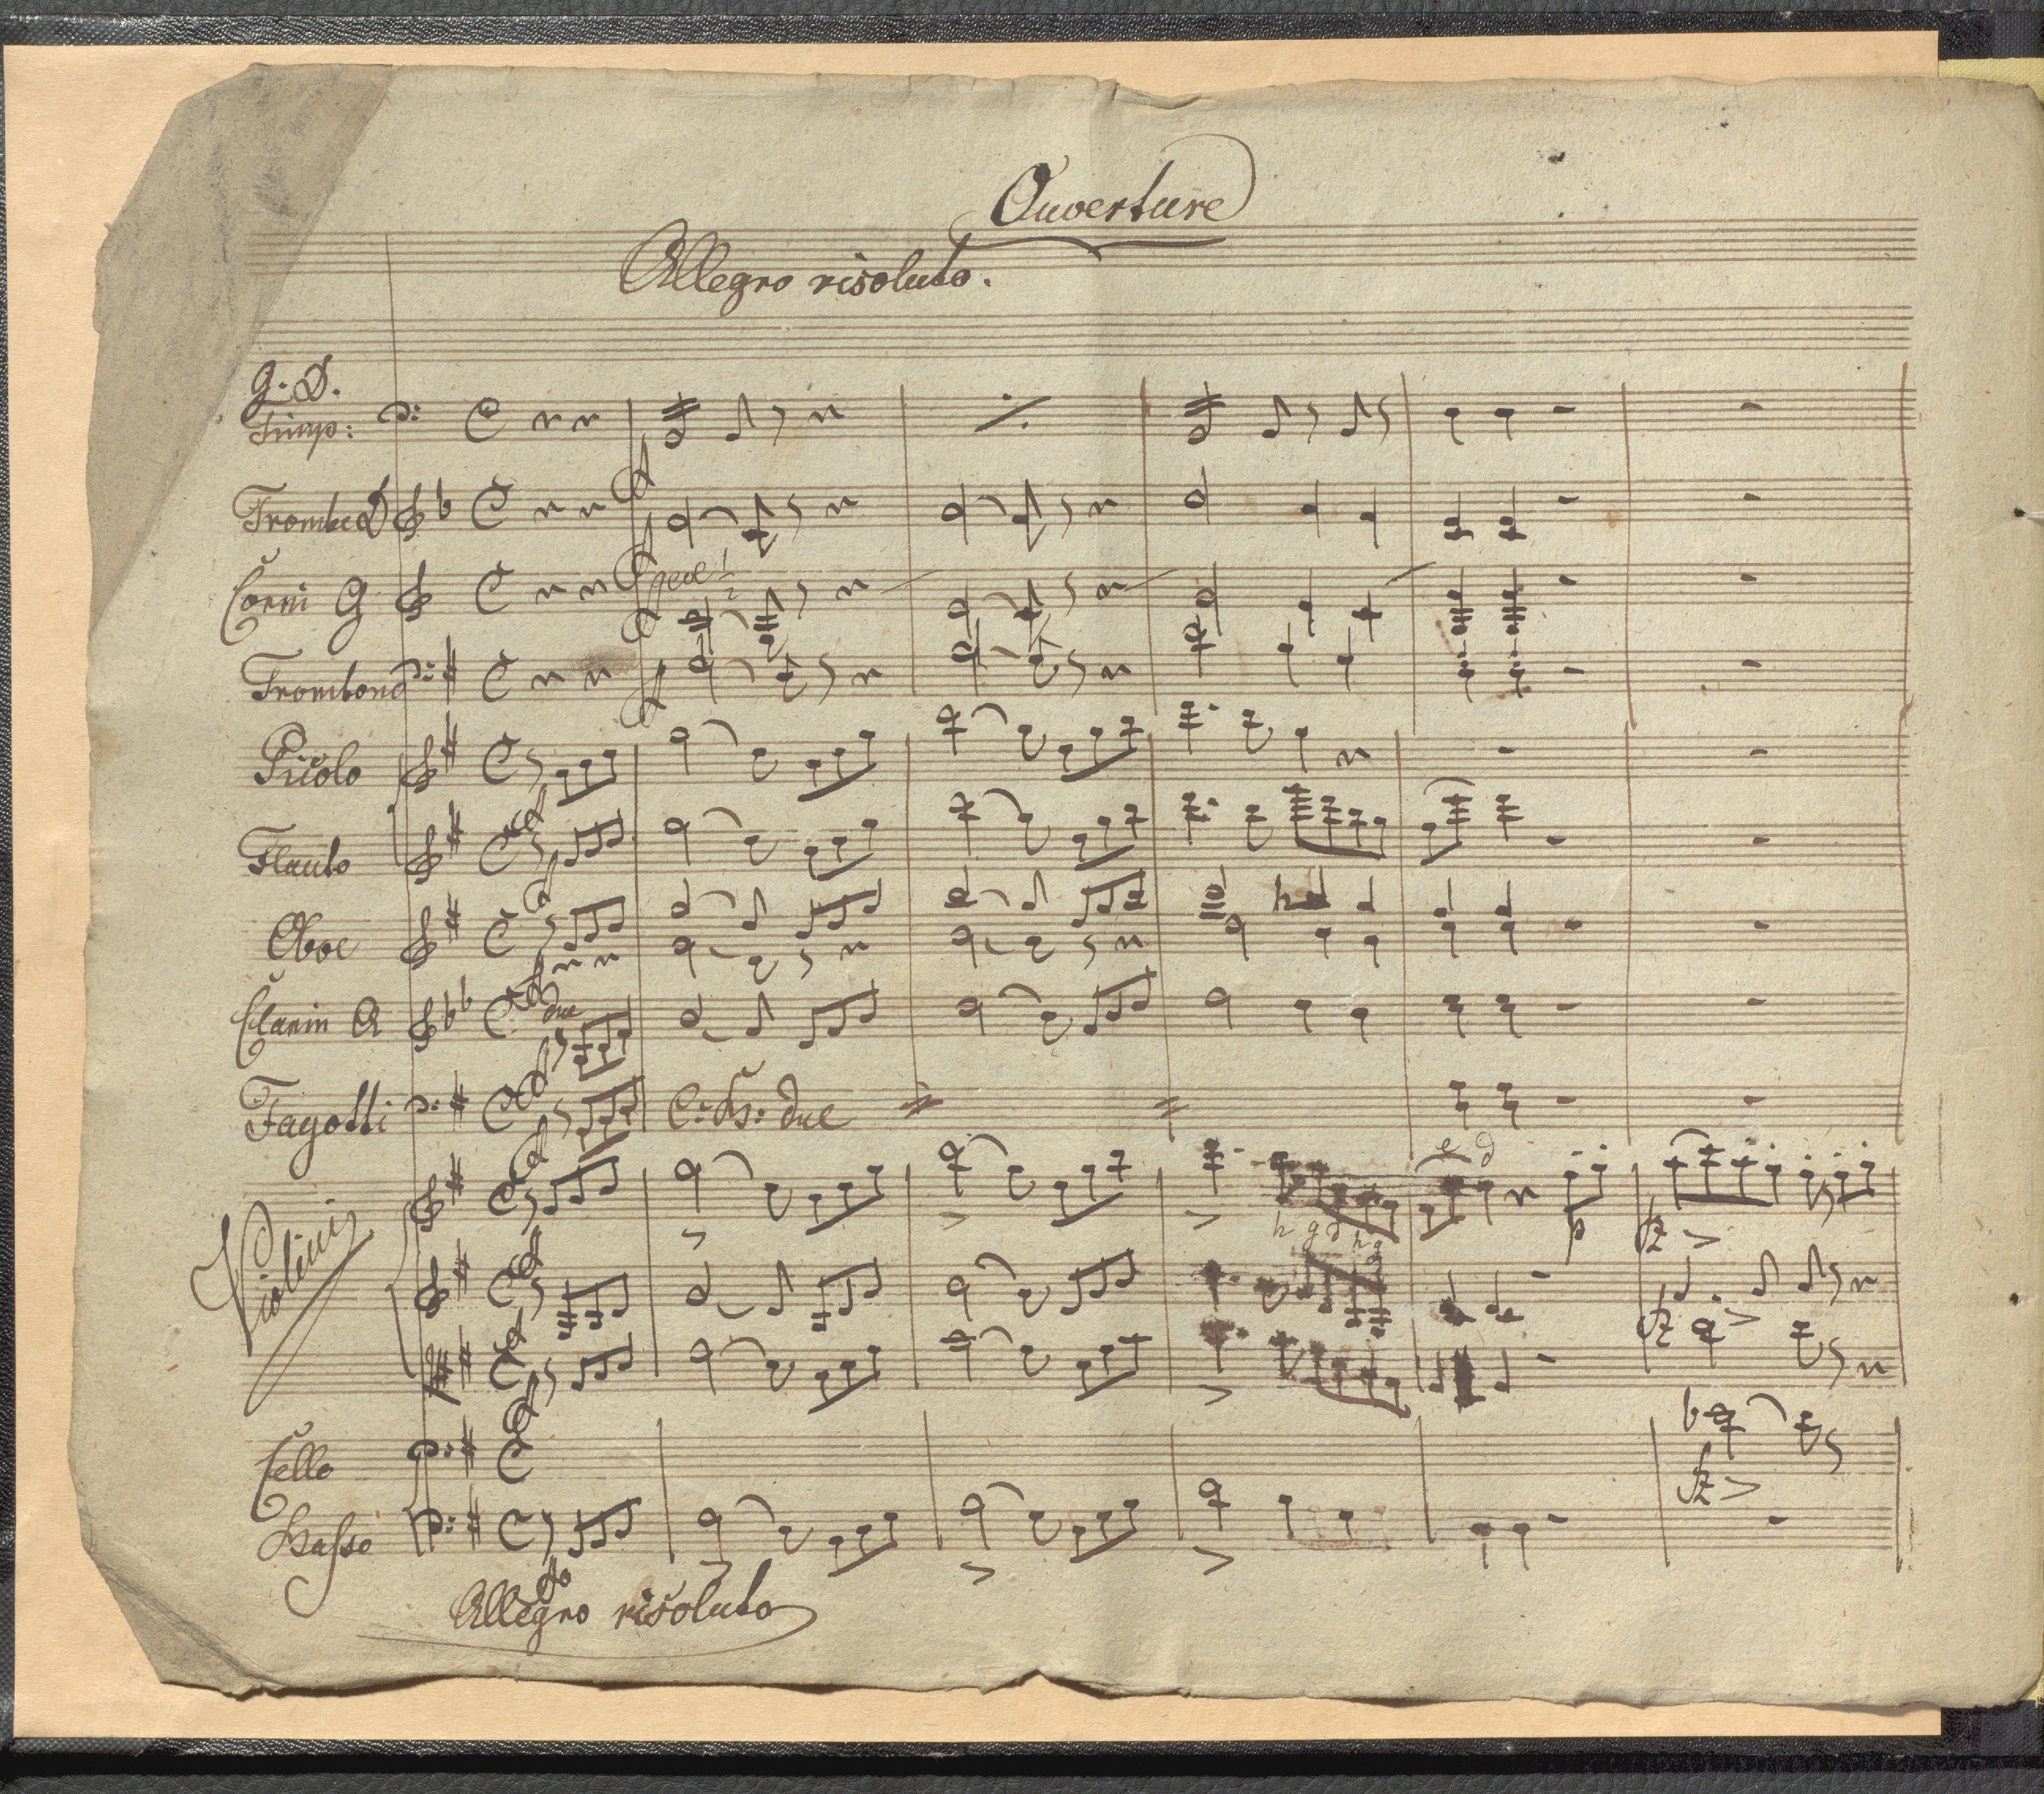 Ouverture
Allegro risoluto.
G. D.
Timp:
Trombe D
Corni G
Trombono
Picolo
Flauto
Oboe
Clarin A
due
Fagotti
C: B: due
e d
Violini
p fz
h g d h g
fz
Cello
fz
Basso
Allegro risoluto